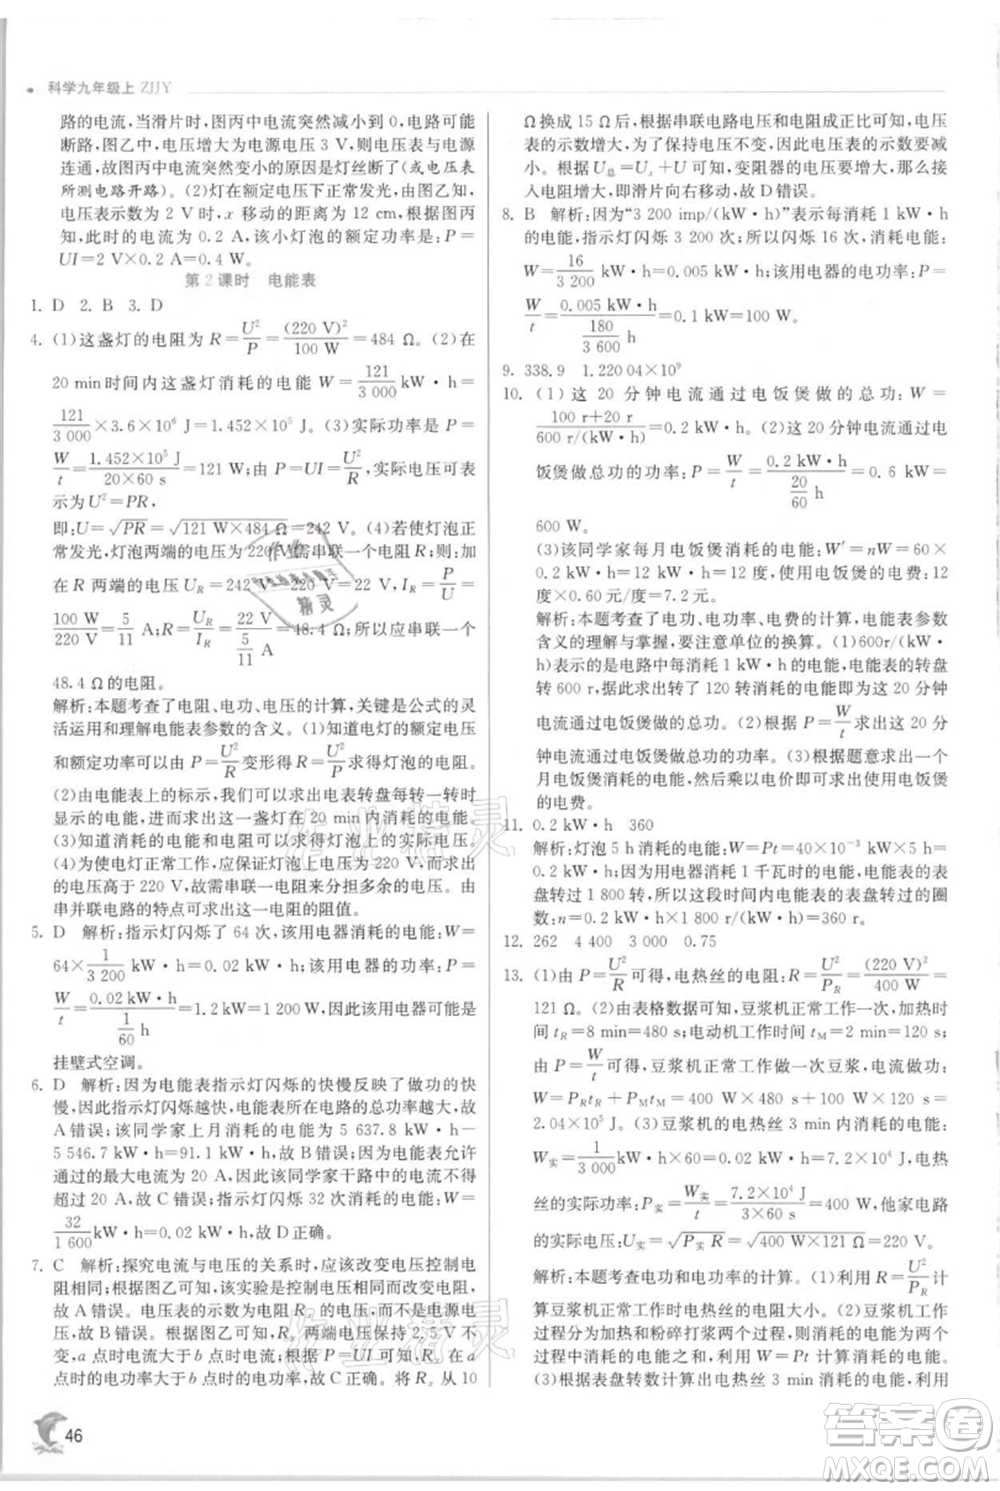 科学九年级上 ZJJY
路的电流,当滑片时,图丙中电流突然减小到 0,电路可能
断路,图丁中电压突然增大为电压 3 V,则电压表与电源
连通,故图丙中电流突然变小的原因是灯丝断了(或电压表
所测电路开路)。(2)灯在额定电压下正常发光,由图乙知,
电压表示数为 2 V 时,x 移动的距离为 12 cm,根据图丙
知,此时的电流为 0.2 A,该小灯泡的额定功率为:P=
UI=2 V×0.2 A=0.4 W。
第 2 课时 电能表
1. D 2. B 3. D
4. (1)这盏灯的电阻 R=U²/P=(220 V)²/100 W=484 Ω (2)在
20 min时间内这盏灯消耗的电能 W=121/3 000 kW·h=
121/3 000×3.6×10⁶ J=1.452×10⁵ J。(3)实际功率是 P=
W/t=1.452×10⁵ J/20×60 s=121 W;由 P=UI=U²/R,实际电压可表
示为 U²=PR,
即:U=√PR=√121 W×484 Ω=242 V。(4)若使灯泡正
常发光,灯泡两端的电压为220 V,需串联一个电阻 R;加
在 R 两端的电压 U_R=242 V-220 V=22 V,I_R=P/U=
100 W/220 V=5/11 A;R=U_R/I_R=22 V/(5/11 A)=48.4 Ω!所以应串联一个
48.4 Ω的电阻。
解析:本题考查了电阻、电功、电压的计算,关键是公式的灵
活运用和理解电能表参数的含义。(1)知道电灯的额定电压
和额定功率,可以由 P=U²/R 变形得 R=U²/P 求得灯泡的电阻。
(2)由电能表上的标示,我们可以求出电表转盘每转一转时
显示消耗的电能,进而求出一盏灯在 20 min 内消耗的电能。
(3)知道消耗的电能和做功时间可以求得灯泡的实际功率。
(4)为使电灯正常工作,应保证灯泡上的电压为 220 V,而电
源电压高于 220 V,故需串联一个电阻来分担多余的电压。由
串并联电路的特点可求出这一电阻的阻值。
5. D 解析:指示灯闪烁了 64 次,该用电器消耗的电能:W=
64×1/3 200 kW·h=0.02 kW·h;该用电器的电功率:P=
W/t=0.02 kW·h/(1/60 h)=1.2 kW=1 200 W,因此该用电器可能是
挂壁式空调。
6. D 解析:因为电能表指示灯闪烁的快慢反映了做功的快
慢,指示灯闪烁越快,电能表所在电路的总功率越大,故
A 错误;该同学家上月消耗的电能为 5 637.8 kW·h-
5 546.7 kW·h=91.1 kW·h,故 B 错误;电能表允许
通过的最大电流为 20 A,因此该同学家干路中的电流不能
超过 20 A,故 C 错误;指示灯闪烁 32 次消耗的电能:W=
32/1 600 kW·h=0.02 kW·h,故 D 正确。
7. C 解析:探究电流与电压的关系时,应该改变电压控制
电阻相同;根据图乙可知,该实验是控制电压而改变电阻,
故 A 错误。电压表的示数为电阻 Rₓ 的电压,而不是电源电
压,故 B 错误。由图乙可知,Rₓ 两端电压保持 2.5 V 不
变,a 点时电流大于 b 点时电流,根据 P=UI 可知,R 在 a
点时的电功率大于在 b 点时的电功率,故 C 正确。将 Rₓ 从 10
Ω换成 15 Ω后,根据串联电路电阻和电压成正比可知,电压
表的示数增大,为了保持电压不变,因此电压表的示数要减
小。根据 U总=Uₓ+U 可知,变阻器的电压要增大,故接
入电阻增大,即滑片向右移动,故 D 错误。
8. B 解析:因为“3 200 imp/(kW·h)”表示每消耗 1 kW·h
的电能,指示灯闪烁 3 200 次;所以闪烁 16 次,消耗电能:
W=16/3 200 kW·h=0.005 kW·h;该用电器的电功率:P=
W/t=0.005 kW·h/(180/3 600 h)=0.1 kW=100 W。
9. 338.9 1.220 04×10⁹
10. (1)这 20 分钟电流通过电饭煲做的总功:W=
100 r+20 r/600 r/(kW·h)=0.2 kW·h。(2)这 20 分钟电流通过电
饭煲做总功的功率:P=W/t=0.2 kW·h/(20/60 h)=0.6 kW=
600 W。
(3)该同学家每月电饭煲消耗的电能:W′=nW=60×
0.2 kW·h=12 kW·h,应付电饭煲的电费:12
度×0.60 元/度=7.2 元。
解析:本题考查了电功、电功率、电费的计算,电能表参数
含义的理解与掌握,要注意单位的换算。(1)600r/(kW·
h)表示的是电路中每消耗 1 kW·h 的电能,电能表的转盘
转 600r,据此求出转了 120 转消耗的电能即为这 20 分钟
电流通过电饭煲做的总功。(2)根据 P=W/t求出这 20 分
钟电流通过电饭煲做总功的功率。(3)根据题意求出一个
月电饭煲消耗的电能,然后乘以电价即可求出电饭煲的
的电费。
11. 0.2 kW·h 360
解析:灯泡 5 h消耗的电能:W=Pt=40×10⁻³ kW×
5 h=0.2 kW·h。因为用电器消耗 1 千瓦时的电能,电能表的
表盘转过 1 800 转,所以这段时间内电能表的表盘转过的圈
数:n=0.2 kW·h×1 800 r/(kW·h)=360 r。
12. 262 4 400 3 000 0.75
13. (1)由 P=U²/R可得,电热丝的电阻:R=U²/P_R=(220 V)²/400 W=
121 Ω。(2)由表格数据可知,豆浆机正常工作一次,加热时
间 t_R=8 min=480 s;电动机工作时间 t_M=2 min=120 s,
由 P=W/t可得,豆浆机正常工作一次,电流做功为:
W=P_R t_R+P_M t_M=400 W×480 s+100 W×120 s=
2.04×10⁵ J。(3)豆浆机电热丝 3 min 内实际消耗的电能:
W实=1/3 000 kW·h×60=0.02 kW·h=7.2×10⁴ J,电热
丝的实际功率:P实=W实/t=7.2×10⁴ J/3×60 s=400 W,他家电路
的实际电压:U实=√P实R=√400 W×121 Ω=220 V。
解析:本题考查电功和电功率的计算。(1)利用 R=U²/P_R 计
算豆浆机正常工作时电热丝的电阻大小。(2)豆浆机正常
工作过程分为加热和粉碎打浆两个过程,正常工作一次消
耗的电能是两个过程的电能之和,利用 W=Pt 计算消耗的电
能。(3)根据表盘转数计算 3 min 消耗的电能,再利用
46
作业精灵
作业精灵
精灵
答案圈
MXQE.COM